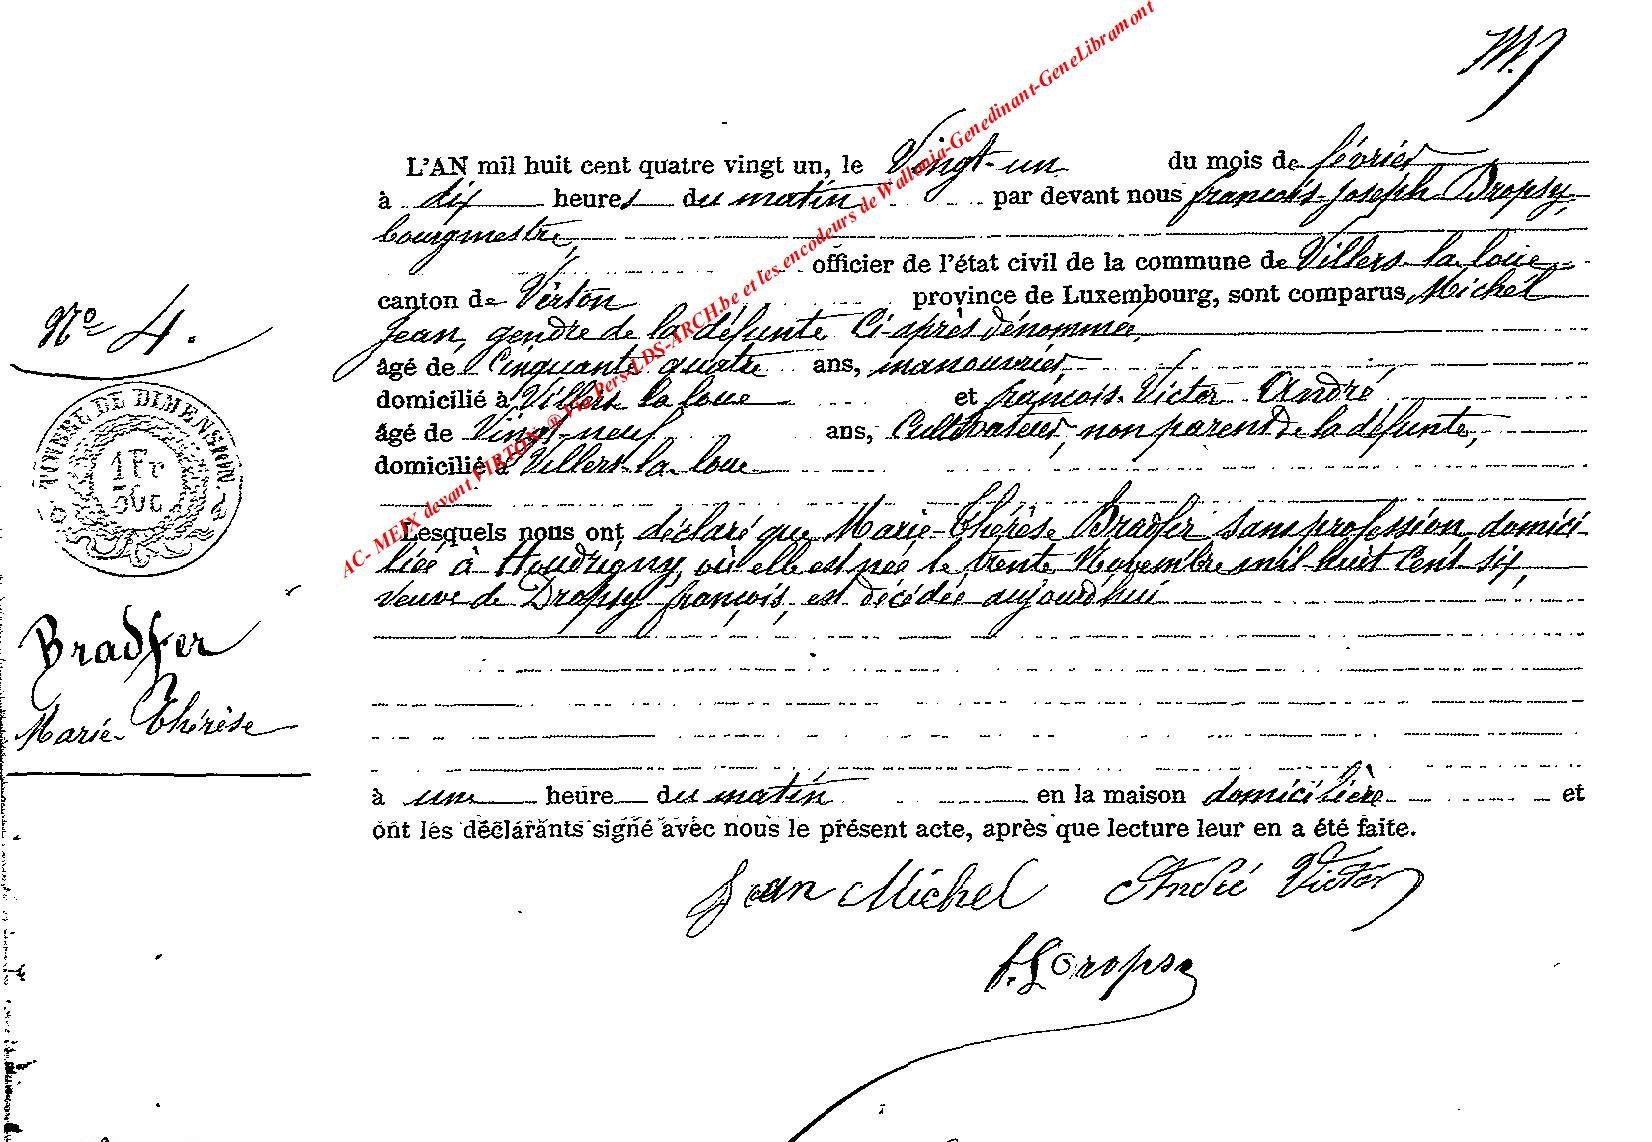 M.J
L'AN mil huit cent quatre vingt un, le Vingt-un du mois de février
à dix heures du matin par devant nous françois-Joseph Dropsy,
bourgmestre,
officier de l'état civil de la commune de Villers-la-loue
canton de Virton province de Luxembourg, sont comparus Michel
Jean, gendre de la défunte Ci-après dénommée,
âgé de Cinquante quatre ans, manouvrier
domicilié à Villers la loue et françois-Victor André
âgé de Vingt-neuf ans, Cultivateur, non parent de la défunte,
domicilié à Villers-la-loue
Lesquels nous ont déclaré que Marie-Thérèse Bradfer sans profession, domici-
liée à Houdrigny, où elle est née le trente Novembre mil-huit Cent-six,
veuve de Dropsy françois, est décédée aujourd'hui
à une heure du matin en la maison domicilière et
ont les déclarants signé avec nous le présent acte, après que lecture leur en a été faite.
Jean Michel André Victor
f. J. Dropsy
No 4.
TIMBRE DE DIMENSION.
1Fr
50c
Bradfer
Marie-Thérèse
AC- MEIX devant VIRTON ® Via Pers-LDS-ARCH.be et les encodeurs de Wallonia-Genedinant-GeneLibramont